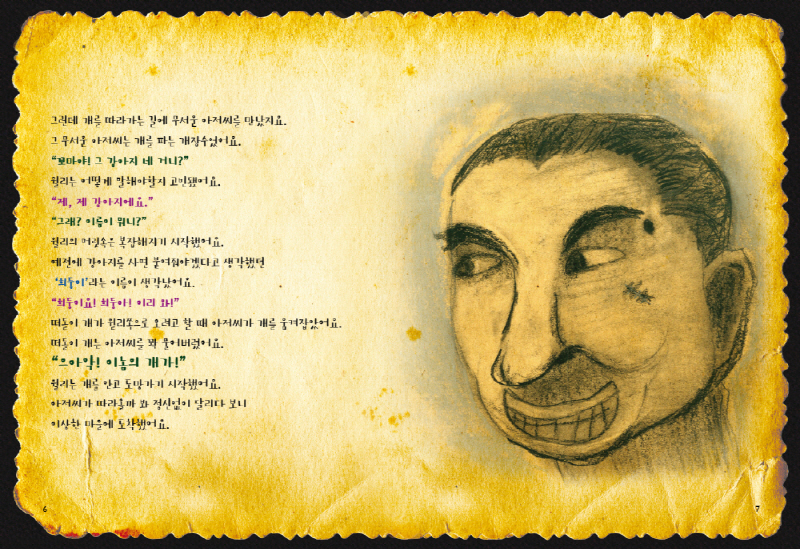 그런데 개를 따라가는 길에 무서운 아저씨를 만났지요.
그 무서운 아저씨는 개를 파는 개장수였어요.
“꼬마야! 그 강아지 네 거니?”
윌리는 어떻게 말해야할지 고민됐어요.
“제, 제 강아지에요.”
“그래? 이름이 뭐니?”
윌리의 머릿속은 복잡해지기 시작했어요.
예전에 강아지를 사면 붙여줘야겠다고 생각했던
‘희동이’라는 이름이 생각났어요.
“희동이요! 희동아! 이리 와!”
떠돌이 개가 윌리쪽으로 오려고 할 때 아저씨가 개를 움켜잡았어요.
떠돌이 개는 아저씨를 콱 물어버렸어요.
“으아악! 이놈의 개가!”
윌리는 개를 안고 도망가기 시작했어요.
아저씨가 따라올까 봐 정신없이 달리다 보니
이상한 마을에 도착했어요.
6
7